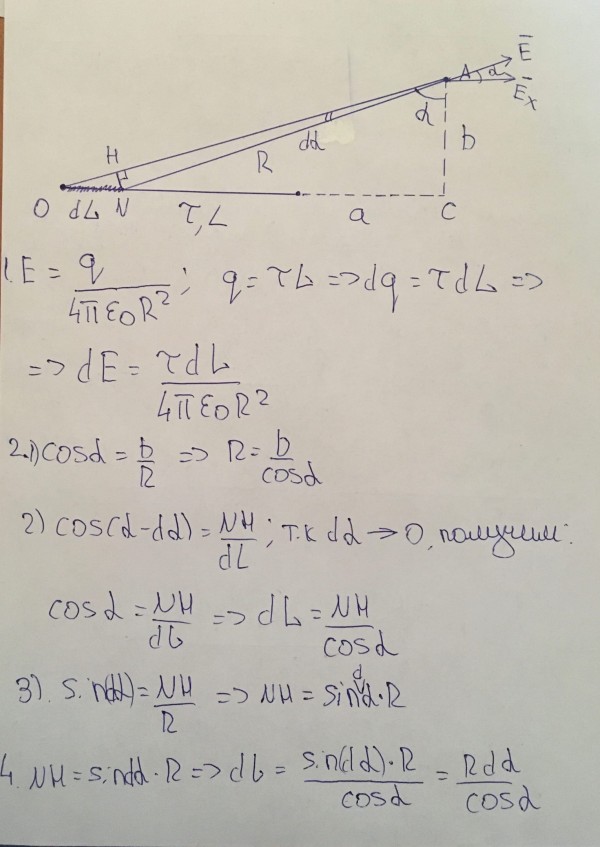 E
A α
Eₓ
α
H
dα
R
b
O dL N τ, L a C
1. E = q / 4πε0R² ; q = τL => dq = τdL =>
=> dE = τdL / 4πε0R²
2.1) cosα = b / R => R = b / cosα
2) cos(α-dα) = NH / dL ; т.к dα → 0, получим:
cosα = NH / dL => dL = NH / cosα
3). sin(dα) = NH / R => NH = sindα·R
4. NH = sindα·R => dL = sin(dα)·R / cosα = Rdα / cosα